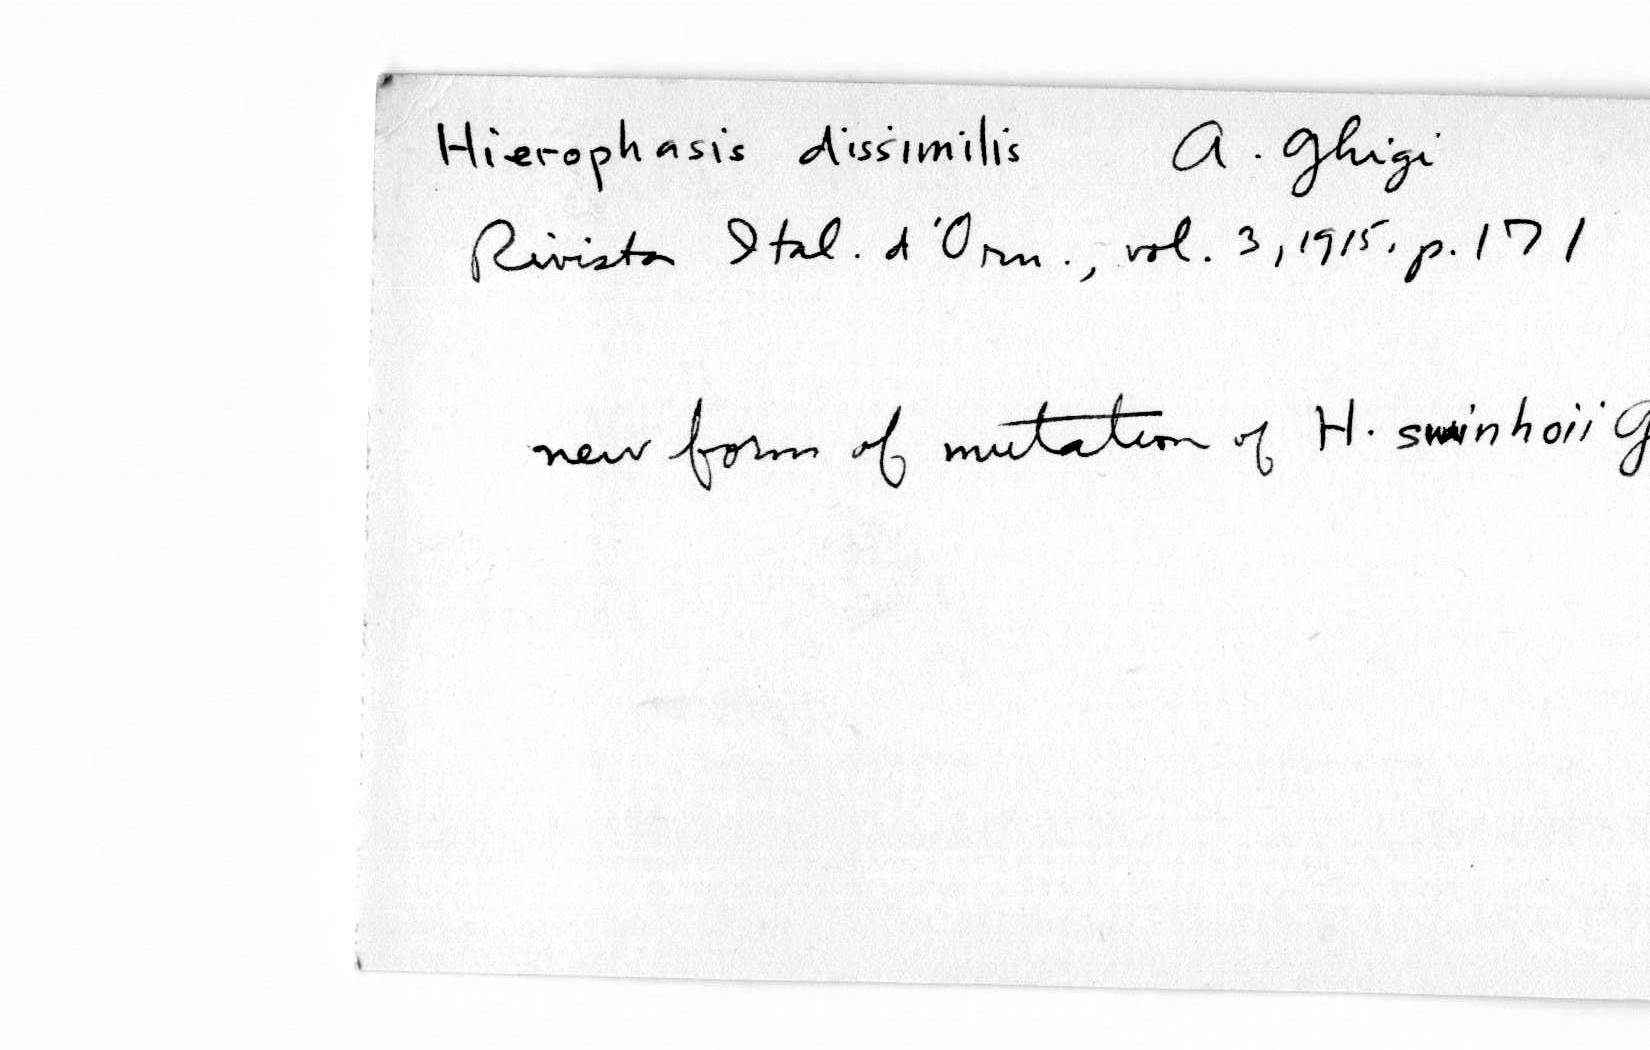 Hierophasis dissimilis A. Ghigi
Rivista Ital. d'Orn., vol. 3, 1915. p. 171
new form of mutation of H. swinhoii